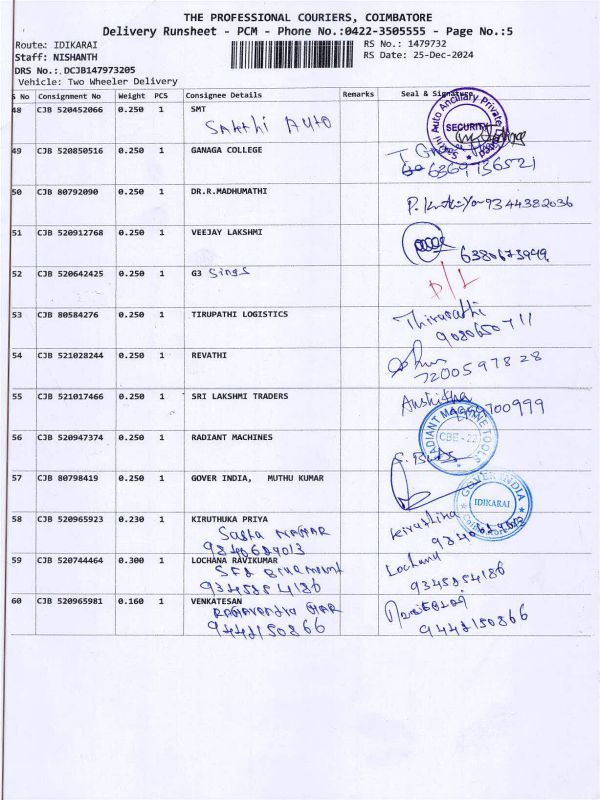 THE PROFESSIONAL COURIERS, COIMBATORE
Delivery Runsheet - PCM - Phone No.:0422-3505555 - Page No.:5
Route: IDIKARAI RS No.: 1479732
Staff: NISHANTH RS Date: 25-Dec-2024
DRS No.: DCJB147973205
Vehicle: Two Wheeler Delivery
S No Consignment No Weight PCS Consignee Details Remarks Seal & Signature
48 CJB 520452066 0.250 1 SMT
Sakthi Auto
Sakthi Auto Ancillary Private
SECURITY
49 CJB 520850516 0.250 1 GANAGA COLLEGE
50 CJB 80792090 0.250 1 DR.R.MADHUMATHI
9344382036
51 CJB 520912768 0.250 1 VEEJAY LAKSHMI
6380673949
52 CJB 520642425 0.250 1 G3 Sings
D/L
53 CJB 80584276 0.250 1 TIRUPATHI LOGISTICS
Thirupathi
9080650711
54 CJB 521028244 0.250 1 REVATHI
7200597828
55 CJB 521017466 0.250 1 SRI LAKSHMI TRADERS
Anshitha
56 CJB 520947374 0.250 1 RADIANT MACHINES
RADIANT MACHINE TOOLS
CBE - 22
57 CJB 80798419 0.250 1 GOVER INDIA, MUTHU KUMAR
GOVER INDIA
IDIKARAI
58 CJB 520965923 0.230 1 KIRUTHUKA PRIYA
Sastha NAGAR
Kiruthika
59 CJB 520744464 0.300 1 LOCHANA RAVIKUMAR
9345854186
Lochana
9345854186
60 CJB 520965981 0.160 1 VENKATESAN
RAGAVENDRA NGAR
9442150866
9442150866